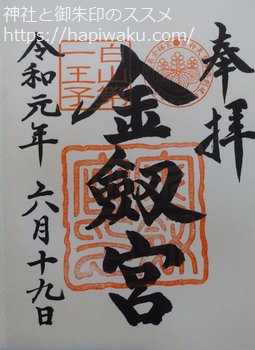 神社と御朱印のススメ
https://hapiwaku.com/
奉拝
金劔宮
令和元年 六月十九日
白山第一王子